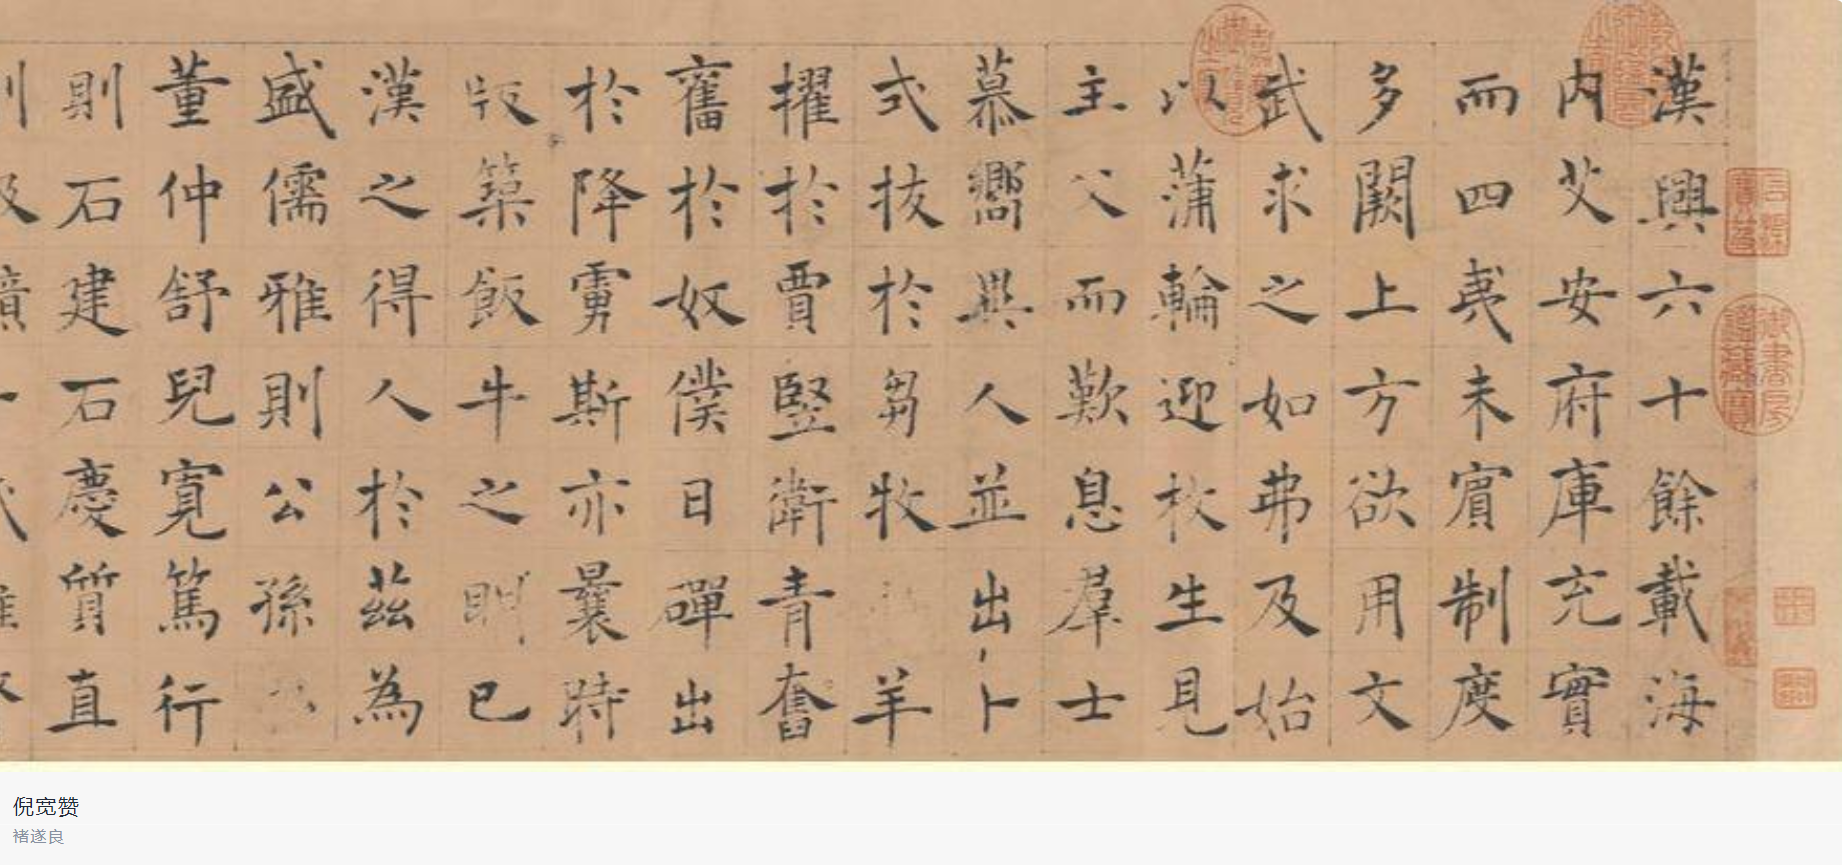 漢興六十餘載海
内艾安府庫充實
而四夷未賓制度
多闕上方欲用文
武求之如弗及始
以蒲輪迎枚生見
主父而歎息羣士
慕嚮異人並出卜
式拔於芻牧羊
擢於賈竪衛青奮
舊於奴僕日磾出
於降虜斯亦曩時
版築飯牛之明已
漢之得人於茲為
盛儒雅則公孫
董仲舒兒寬篤行
則石建石慶質直
倪宽赞
褚遂良